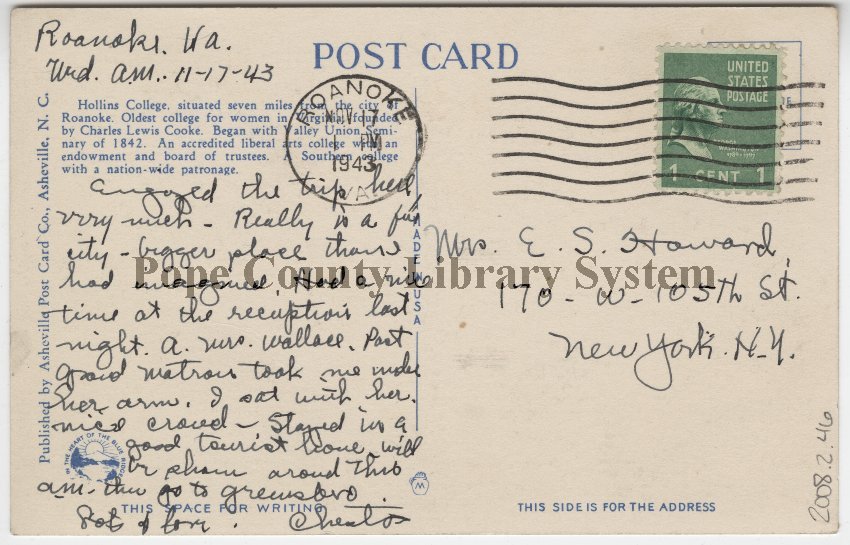 Roanoke, Va.
Wed. a.m. 11-17-43
POST CARD
Hollins College, situated seven miles from the city of
Roanoke. Oldest college for women in Virginia, founded
by Charles Lewis Cooke. Began with Valley Union Semi-
nary of 1842. An accredited liberal arts college with an
endowment and board of trustees. A Southern college
with a nation-wide patronage.
Enjoyed the trip here
very much - Really is a fine
city - bigger place than I
had imagined. Had a nice
time at the reception last
night. A. Mrs. Wallace. Past
Grand Matron took me under
her arm. I sat with her.
nice crowd - Stayed in a
good tourist home, will
be shown around this
a.m. then go to Greensboro.
Lots of love.
Published by Asheville Post Card Co., Asheville, N. C.
MADE IN USA
IN THE HEART OF THE BLUE RIDGE
THIS SPACE FOR WRITING
ROANOKE
NOV 17
PM
1943
VA.
UNITED
STATES
POSTAGE
1 CENT 1
Mrs. E. S. Howard,
170 - W - 105th St.
New York. N.Y.
THIS SIDE IS FOR THE ADDRESS
2008.2.46
Pope County Library System